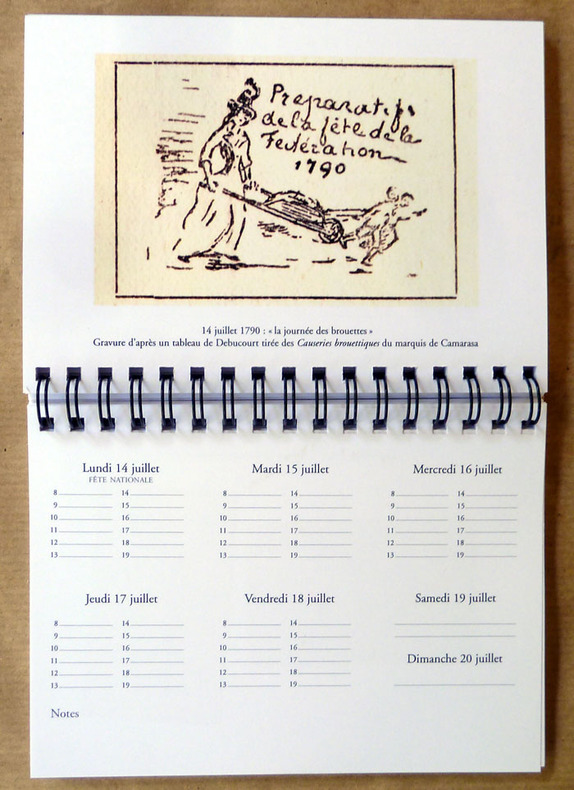 Préparatifs
de la fête de la
Fédération
1790
14 juillet 1790 : « la journée des brouettes »
Gravure d'après un tableau de Debucourt tirée des Causeries brouettiques du marquis de Camarasa
Lundi 14 juillet
FÊTE NATIONALE
8 14
9 15
10 16
11 17
12 18
13 19
Mardi 15 juillet
8 14
9 15
10 16
11 17
12 18
13 19
Mercredi 16 juillet
8 14
9 15
10 16
11 17
12 18
13 19
Jeudi 17 juillet
8 14
9 15
10 16
11 17
12 18
13 19
Vendredi 18 juillet
8 14
9 15
10 16
11 17
12 18
13 19
Samedi 19 juillet
Dimanche 20 juillet
Notes